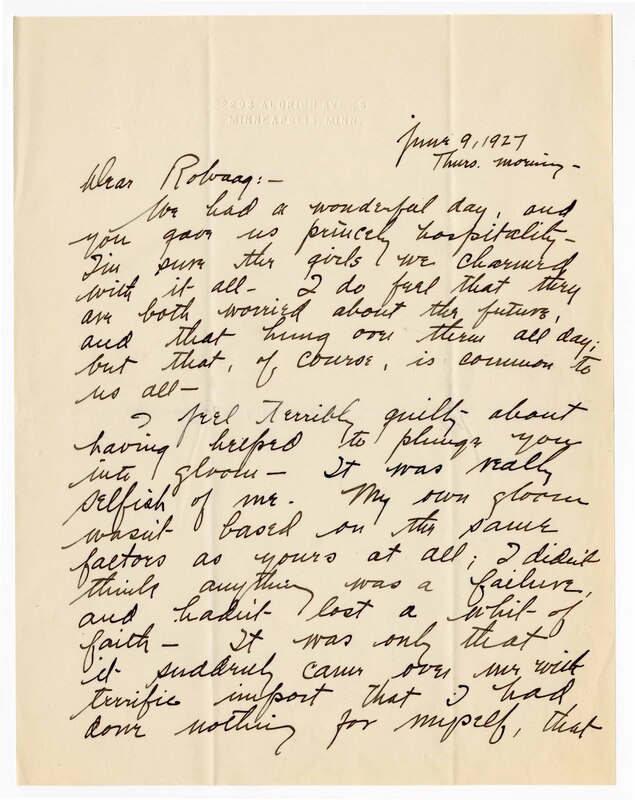 2203 ALDRICH AVE., S.
MINNEAPOLIS, MINN.
June 9, 1927
Thurs. morning –
Dear Rolvaag: –
We had a wonderful day, and
you gave us princely hospitality –
I'm sure the girls we charmed
with it all – I do feel that they
are both worried about the future,
and that hung over them all day;
but that, of course, is common to
us all –
I feel terribly guilty about
having helped to plunge you
into gloom – It was really
selfish of me. My own gloom
wasn't based on the same
factors as yours at all; I didn't
think anything was a failure,
and hadn't lost a whit of
faith – It was only that
it suddenly came over me with
terrific import that I had
done nothing for myself, that